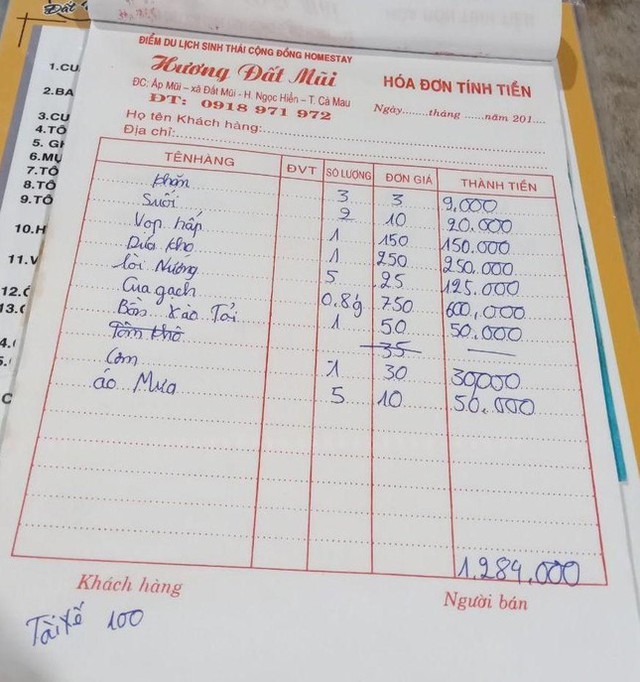 1.CU
2.BA
3.CU
4.TÔ
5. G
6.MỰ
7.TÔ
8.TÔ
9.TÔ
10.H
11.V
13.
ĐIỂM DU LỊCH SINH THÁI CỘNG ĐỒNG HOMESTAY
Hương Đất Mũi
HÓA ĐƠN TÍNH TIỀN
ĐC: Ấp Mũi – xã Đất Mũi - H. Ngọc Hiển – T. Cà Mau
ĐT: 0918 971 972
Ngày........tháng ......năm 201....
Họ tên Khách hàng:
Địa chỉ:
TÊNHÀNG ĐVT SỐ LƯỢNG ĐƠN GIÁ THÀNH TIỀN
Khăn 3 3 9.000
Suối 2 10 20.000
Vọp hấp 1 150 150.000
Dứa kho 1 250 250.000
Lòi Nướng 5 25 125.000
Cua gạch 0.8g 750 600,000
Bồn xào Tỏi 1 50 50.000
Tôm khô 35 —
Cơm 1 30 30000
áo Mưa 5 10 50.000
1.284,000
Khách hàng Người bán
Tài xế 100